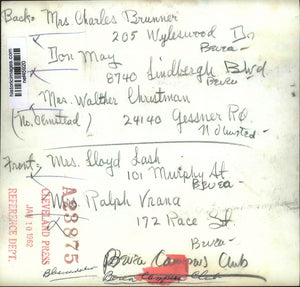 Back: Mrs. Charles Brunner
205 Wyleswood Dr
Berea
Don May
8740 Lindbergh Blvd
Berea
Mrs. Walther Christman
(No. Olmsted) 24140 Gessner Rd.
N. Olmsted
Front: Mrs. Lloyd Lash
101 Murphy St.
Berea
Ralph Vrana
172 Race St.
Berea
Berea Campus Club
Berea Campus Club
A23875
CLEVELAND PRESS
JAN 10 1962
REFERENCE DEPT.
historicimages.com